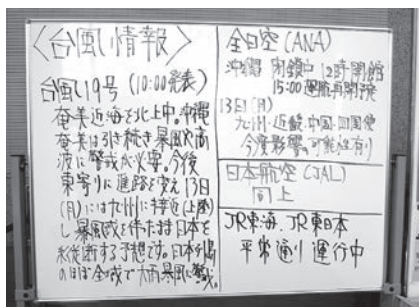 〈台風情報〉
台風19号 (10:00発表)
奄美近海を北上中。沖縄
奄美は引き続き暴風や高
波に警戒が必要。今後
東寄りに進路を変え13日
(月)には九州に接近(上陸)
し暴風域を伴たまま日本を
縦断する予想です。日本列島
の日は全域で大雨暴風に警戒。
全日空(ANA)
沖縄 閉鎖中 12時開館
15:00 運航再開予定
13日(月)
九州・近畿・中国・四国便
今後影響の可能性有り
日本航空(JAL)
同上
JR東海、JR東日本
平常通り運行中